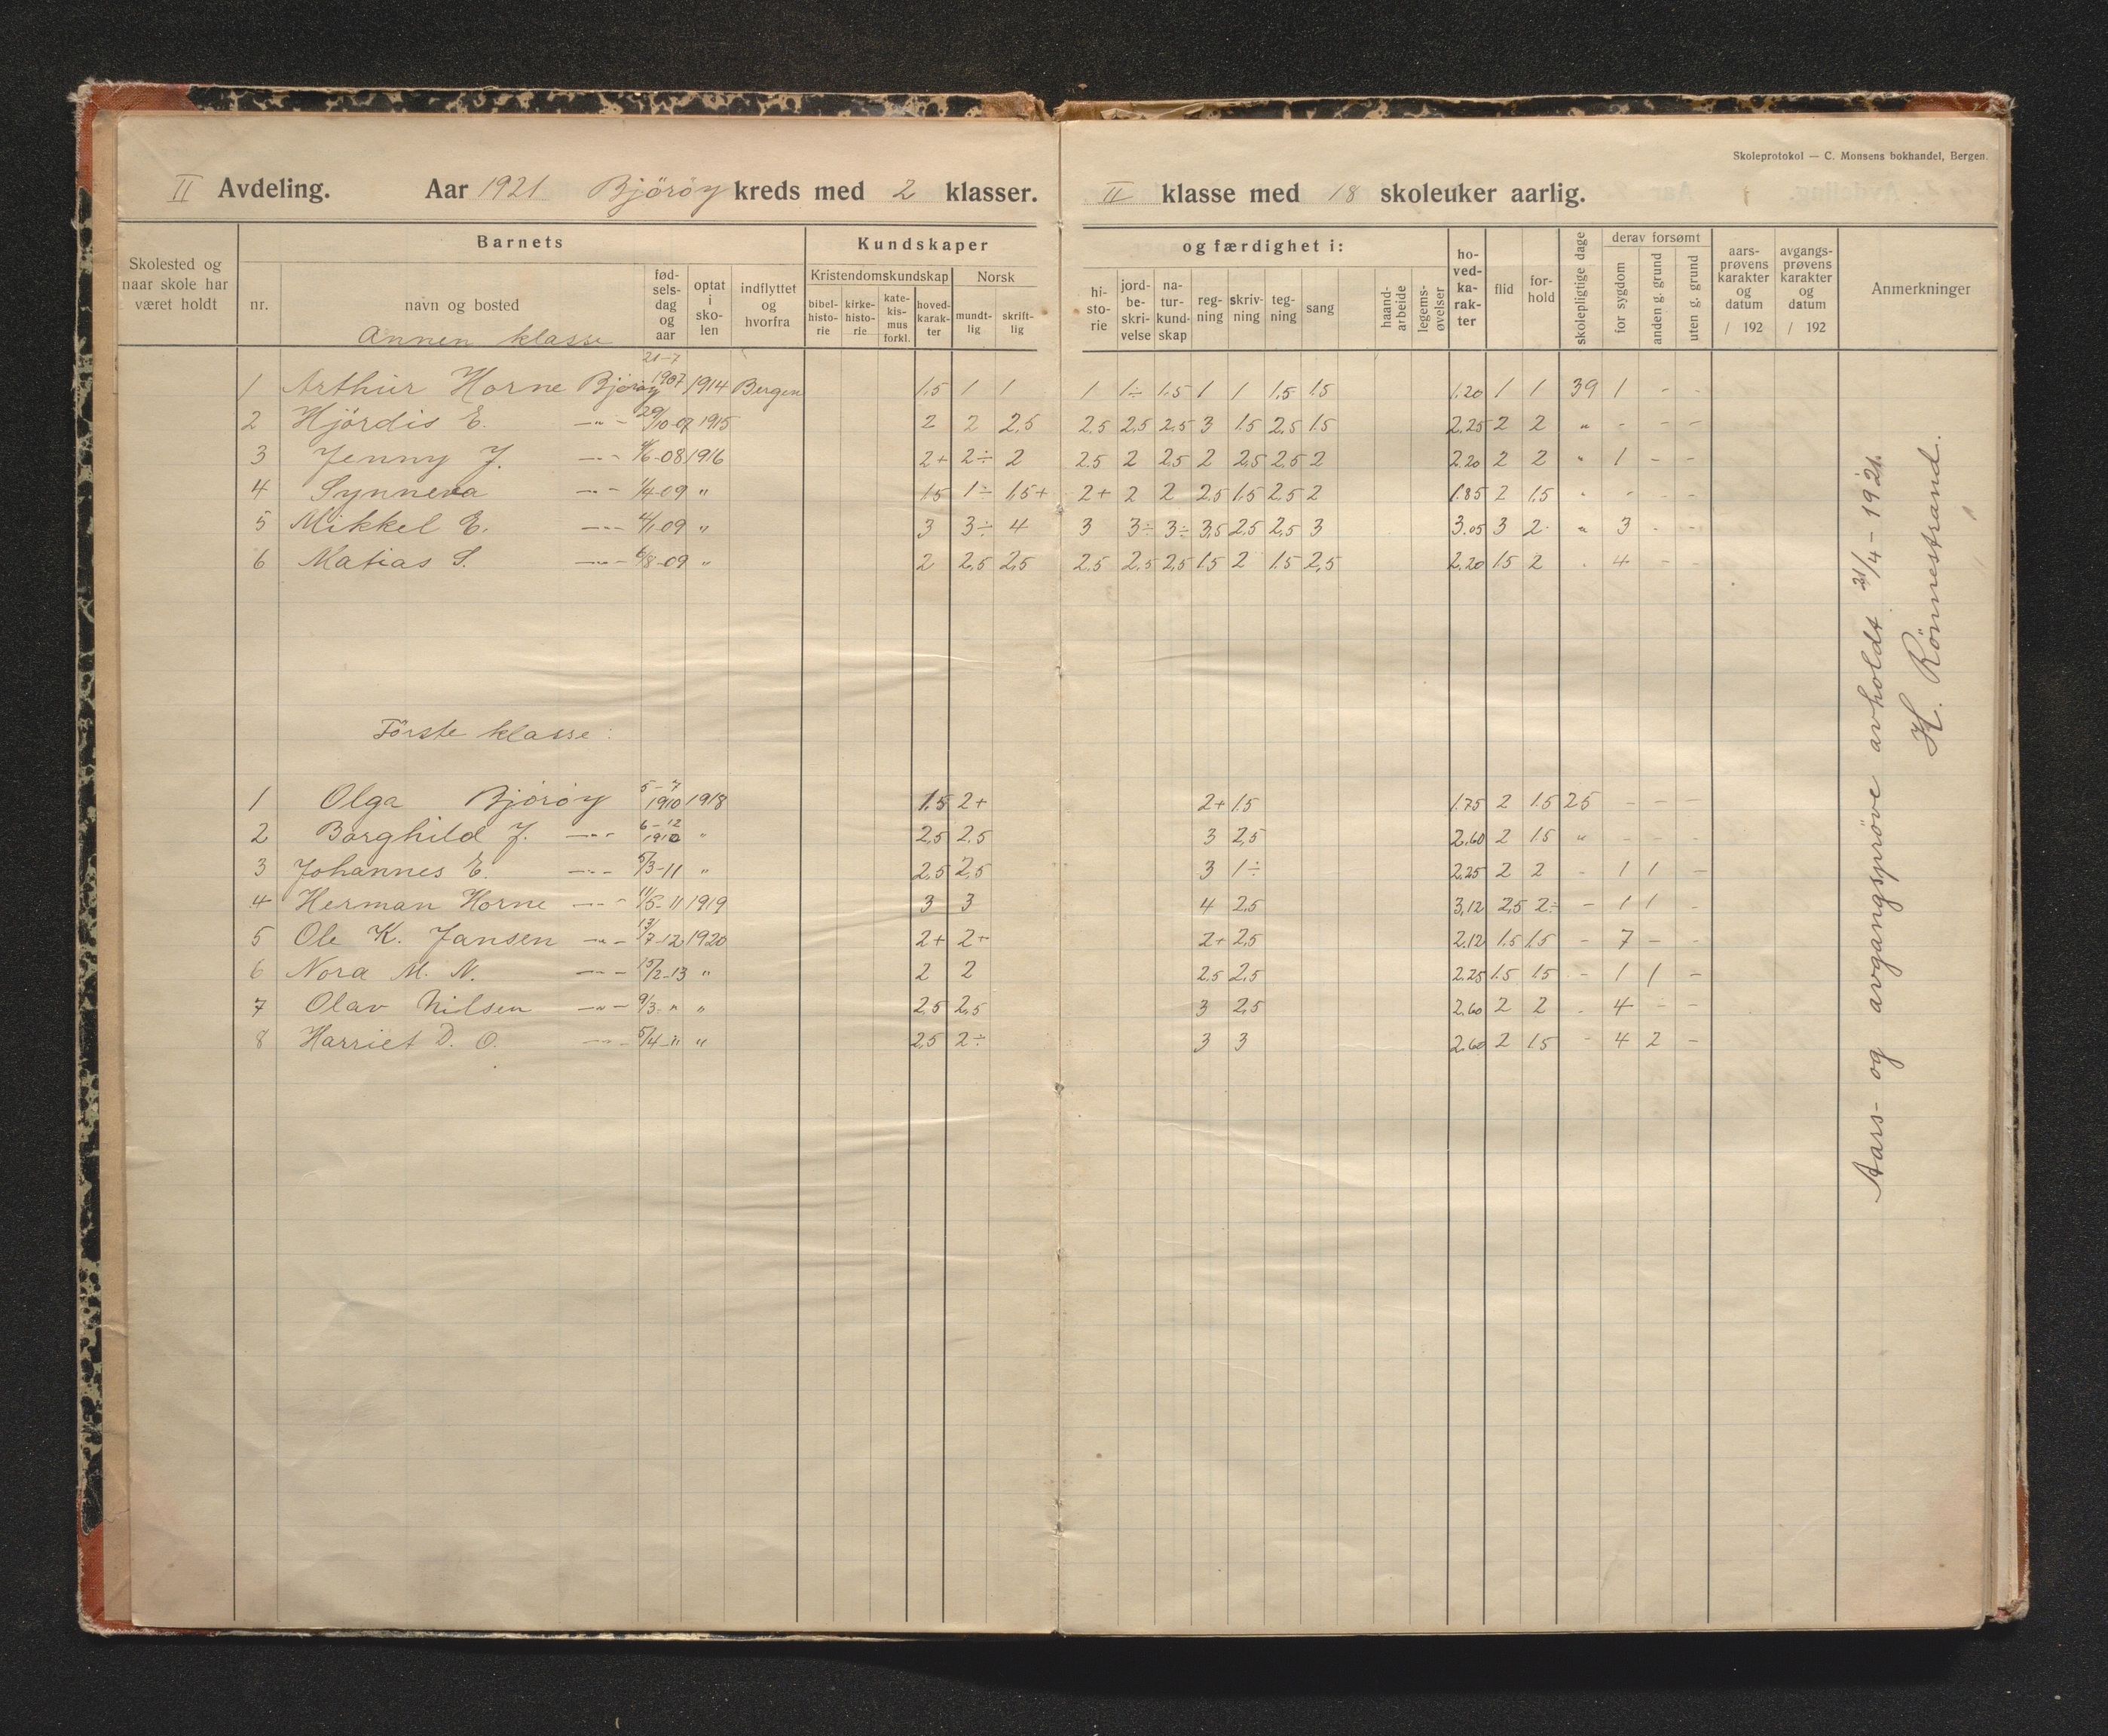 Skoleprotokol — C. Monsens bokhandel, Bergen.
II Avdeling. Aar 1921 Björöy kreds med 2 klasser. II klasse med 18 skoleuker aarlig.
Skolested og naar skole har været holdt
Barnets
nr.
navn og bosted
fød-sels-dag og aar
optat i sko-len
indflyttet og hvorfra
Kundskaper og færdighet i:
Kristendomskundskap
bibel-histo-rie
kirke-histo-rie
kate-kis-mus forkl.
hoved-karak-ter
Norsk
mundt-lig
skrift-lig
hi-sto-rie
jord-be-skri-velse
na-tur-kund-skap
reg-ning
skriv-ning
teg-ning
sang
haand-arbeide
legems-øvelser
ho-ved-ka-rak-ter
flid
for-hold
skolepligtige dage
derav forsømt
for sygdom
anden g. grund
uten g. grund
aars-prøvens karakter og datum / 192
avgangs-prøvens karakter og datum / 192
Anmerkninger
Annen klasse
1 Arthur Horne Björöy 21-7 1907 1914 Bergen 1.5 1 1 1 1÷ 1.5 1 1 1,5 1.5 1.20 1 1 39 1 - -
2 Hjördis E. —„— 29/10-07 1915 2 2 2,5 2.5 2,5 2,5 3 1.5 2,5 1.5 2.25 2 2 „ - - -
3 Jenny J. —„— /6-08 1916 2+ 2÷ 2 2.5 2 2,5 2 2,5 2,5 2 2.20 2 2 „ 1 - -
4 Synneva —„— 1/4-09 „ 1.5 1÷ 1,5+ 2+ 2 2 2,5 1.5 2,5 2 1.85 2 1.5 „ - - -
5 Mikkel E. —„— 4/1-09 „ 3 3÷ 4 3 3÷ 3÷ 3,5 2,5 2,5 3 3.05 3 2 „ 3 - -
6 Matias S. —„— 6/8-09 „ 2 2,5 2,5 2.5 2,5 2,5 1.5 2 1.5 2,5 2.20 1.5 2 „ 4 - -
Förste klasse:
1 Olga Björöy 5-7 1910 1918 1.5 2+ 2+ 1.5 1.75 2 1.5 25 - - -
2 Borghild J. —„— 6-12 1910 „ 2,5 2,5 3 2,5 2.60 2 1.5 „ - - -
3 Johannes E. —„— 5/3-11 „ 2,5 2,5 3 1÷ 2.25 2 2 - 1 1 -
4 Herman Horne —„— 11/5-11 1919 3 3 4 2.5 3,12 2,5 2÷ - 1 1 -
5 Ole K. Jansen —„— 13/7-12 1920 2+ 2+ 2+ 2,5 2.12 1.5 1.5 - 7 - -
6 Nora M. N. —„— 15/2-13 „ 2 2 2,5 2,5 2.25 1.5 1.5 - 1 1 -
7 Olav Nilsen —„— 9/3-„ „ 2,5 2,5 3 2,5 2.60 2 2 - 4 - -
8 Harriet D. O. —„— 5/4-„ „ 2,5 2÷ 3 3 2.60 2 1.5 - 4 2 -
Aars- og avgangsprøve avholdt 21/4 - 1921.
H. Rönnestrand.